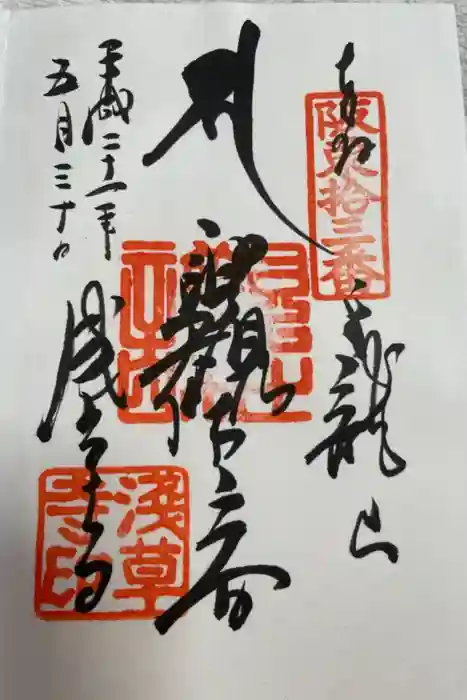 奉拝
阪東拾三番
金龍山
聖観世音
平成二十一年
五月三十日
浅草寺
淺草
寺印